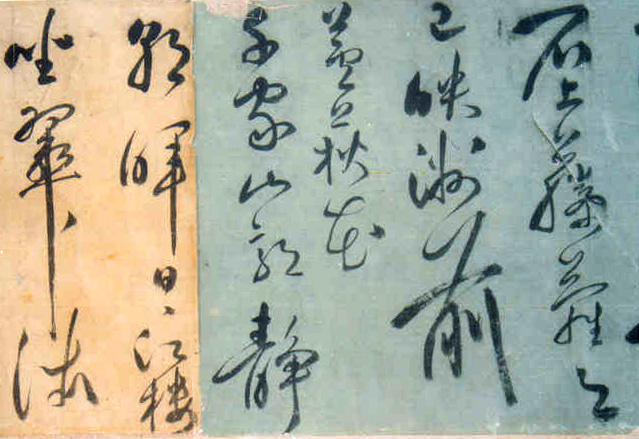 石上藤蘿月
已映洲前
蘆荻花
千家山郭靜
朝暉日〻江樓
坐翠微